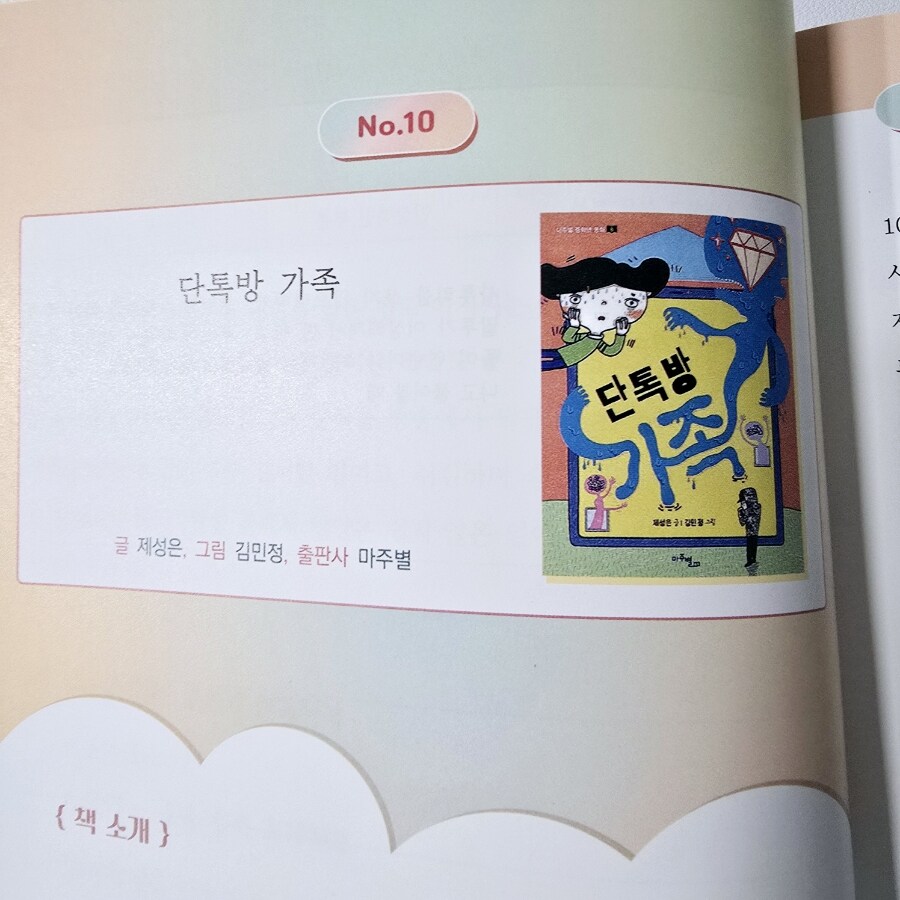 No.10
단톡방 가족
글 제성은, 그림 김민정, 출판사 마주별
마주별 중학년 동화 8
단톡방
가족
제성은 글 | 김민정 그림
마주별
{ 책 소개 }
10